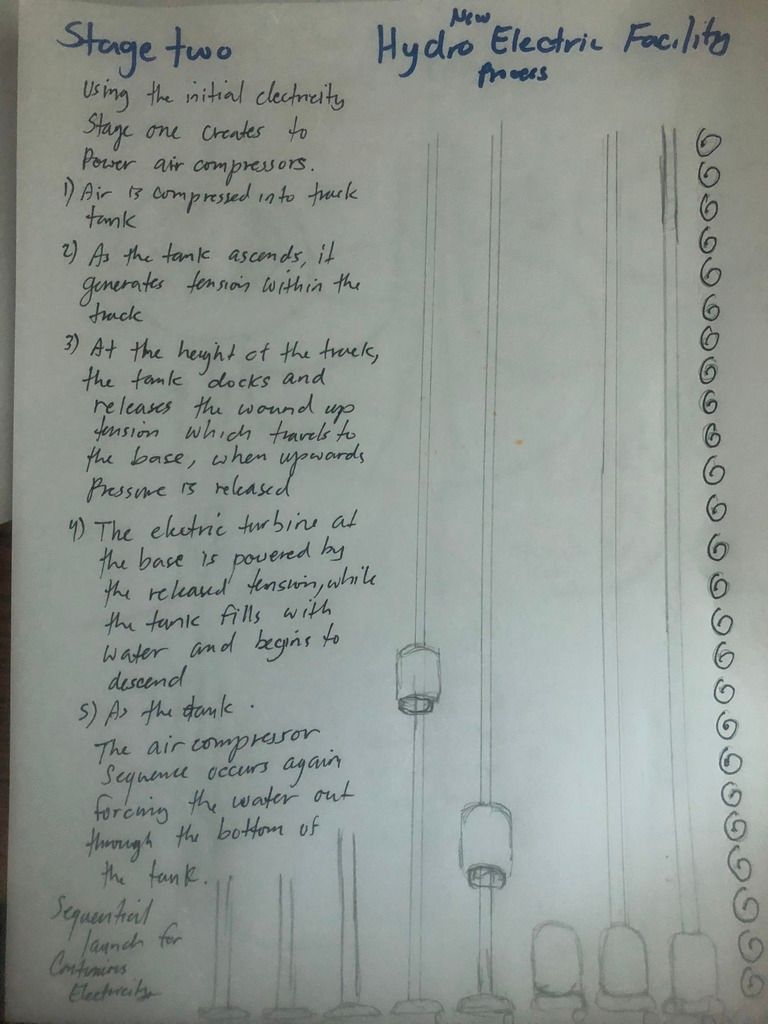 Stage two
New
Hydro Electric Facility
Process
Using the initial electricity
Stage one creates to
Power air compressors.
1) Air is compressed into track
tank
2) As the tank ascends, it
generates tension within the
track
3) At the height of the track,
the tank docks and
releases the wound up
tension which travels to
the base, when upwards
Pressure is released
4) The electric turbine at
the base is powered by
the released tension, while
the tank fills with
water and begins to
descend
5) As the tank .
The air compressor
Sequence occurs again
forcing the water out
through the bottom of
the tank.
Sequential
launch for
Continuous
Electricity